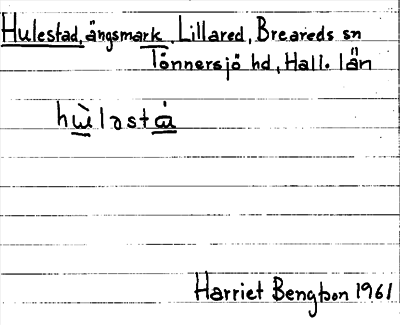 Hulestad, ängsmark, Lillared, Breareds sn
Tönnersjö hd, Hall. län
hẁləstȧ
Harriet Bengtson 1961